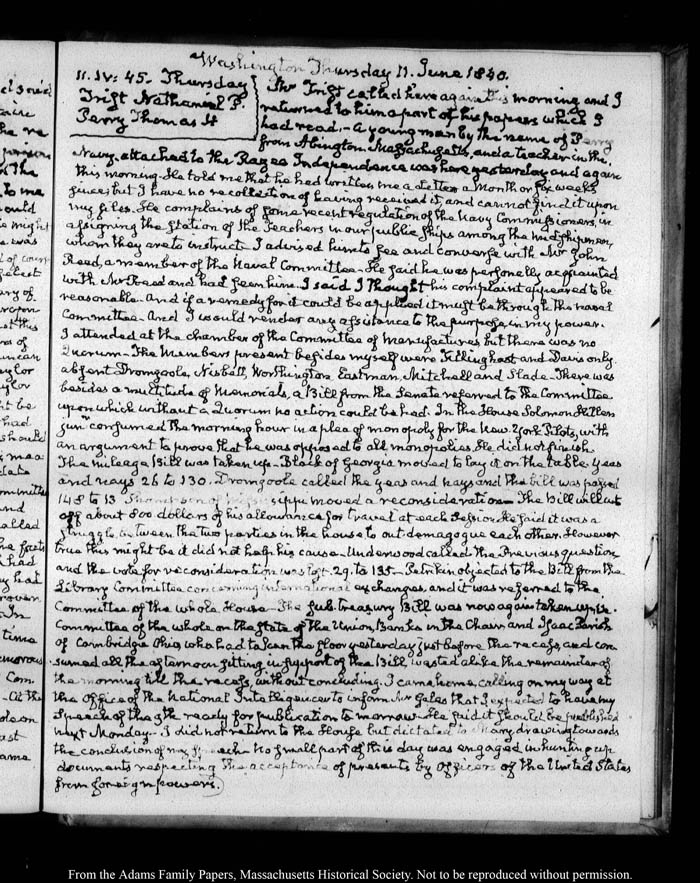 Washington Thursday 11. June 1840.
11. IV: 45. Thursday
Trist Nathaniel P.
Perry Thomas H
Mr Trist called here again this morning and I
returned to him a part of his papers which I
had read.— A young man by the name of Perry
from Abington Massachusetts, and a teacher in the
Navy, attached to the Razee Independence was here yesterday and again
this morning. He told me that he had written me a letter a Month or six weeks
since; but I have no recollection of having received it, and cannot find it upon
my files. He complains of some recent regulation of the Navy Commissioners, in
assigning the station of the Teachers in our public ships among the midshipmen,
whom they are to instruct. I advised him to see and converse with Mr John
Reed, a member of the Naval Committee— He said he was personally acquainted
with Mr Reed and had seen him. I said I thought his complaint appeared to be
reasonable. And if a remedy for it could be applied it must be through the naval
Committee. And I would render any assistance to the purpose in my power.
I attended at the chamber of the Committee of Manufactures but there was no
Quorum— The Members present besides myself were Tillinghast and Davis only
absent Dromgoole, Nisbett, Worthington Eastman, Mitchell and Slade. There was
besides a multitude of Memorials, a Bill from the Senate referred to the Committee
upon which without a Quorum no action could be had. In the House Solomon Hillen
junr consumed the morning hour in a plea of monopoly for the New-York Pilots, with
an argument to prove that he was opposed to all monopolies. He did not finish
The mileage Bill was taken up— Black of Georgia moved to lay it on the table yeas
and nays 26 to 130. Dromgoole called the yeas and nays and the bill was passed
148 to 13 Thompson of Mississippi moved a reconsideration— The Bill will cut
off about 800 dollars of his allowance for travel at each Session. He said it was a
struggle between the two parties in the house to out demagogue each other. However
true this might be it did not help his cause. Underwood called the Previous question
and the vote for reconsideration was lost. 29. to 135.— Petrikin objected to the Bill from the
Library Committee concerning international exchanges, and it was referred to the
Committee of the whole House— The sub-treasury Bill was now again taken up in
Committee of the whole on the State of the Union, Banks in the Chair and Isaac Parish
of Cambridge Ohio, who had taken the floor yesterday just before the recess, and con
sumed all the afternoon sitting in support of the Bill, wasted alike the remainder of
the morning till the recess, without concluding. I came home, calling on my way at
the office of the National Intelligencer to inform Mr Gales that I expected to have my
Speech of the 5th ready for publication to morrow. He said it should be published
next Monday. I did not return to the House but dictated to Mary drawing towards
the conclusion of my speech. No small part of this day was engaged in hunting up
documents respecting the acceptance of presents by Officers of the United States
from foreign powers.
From the Adams Family Papers, Massachusetts Historical Society. Not to be reproduced without permission.